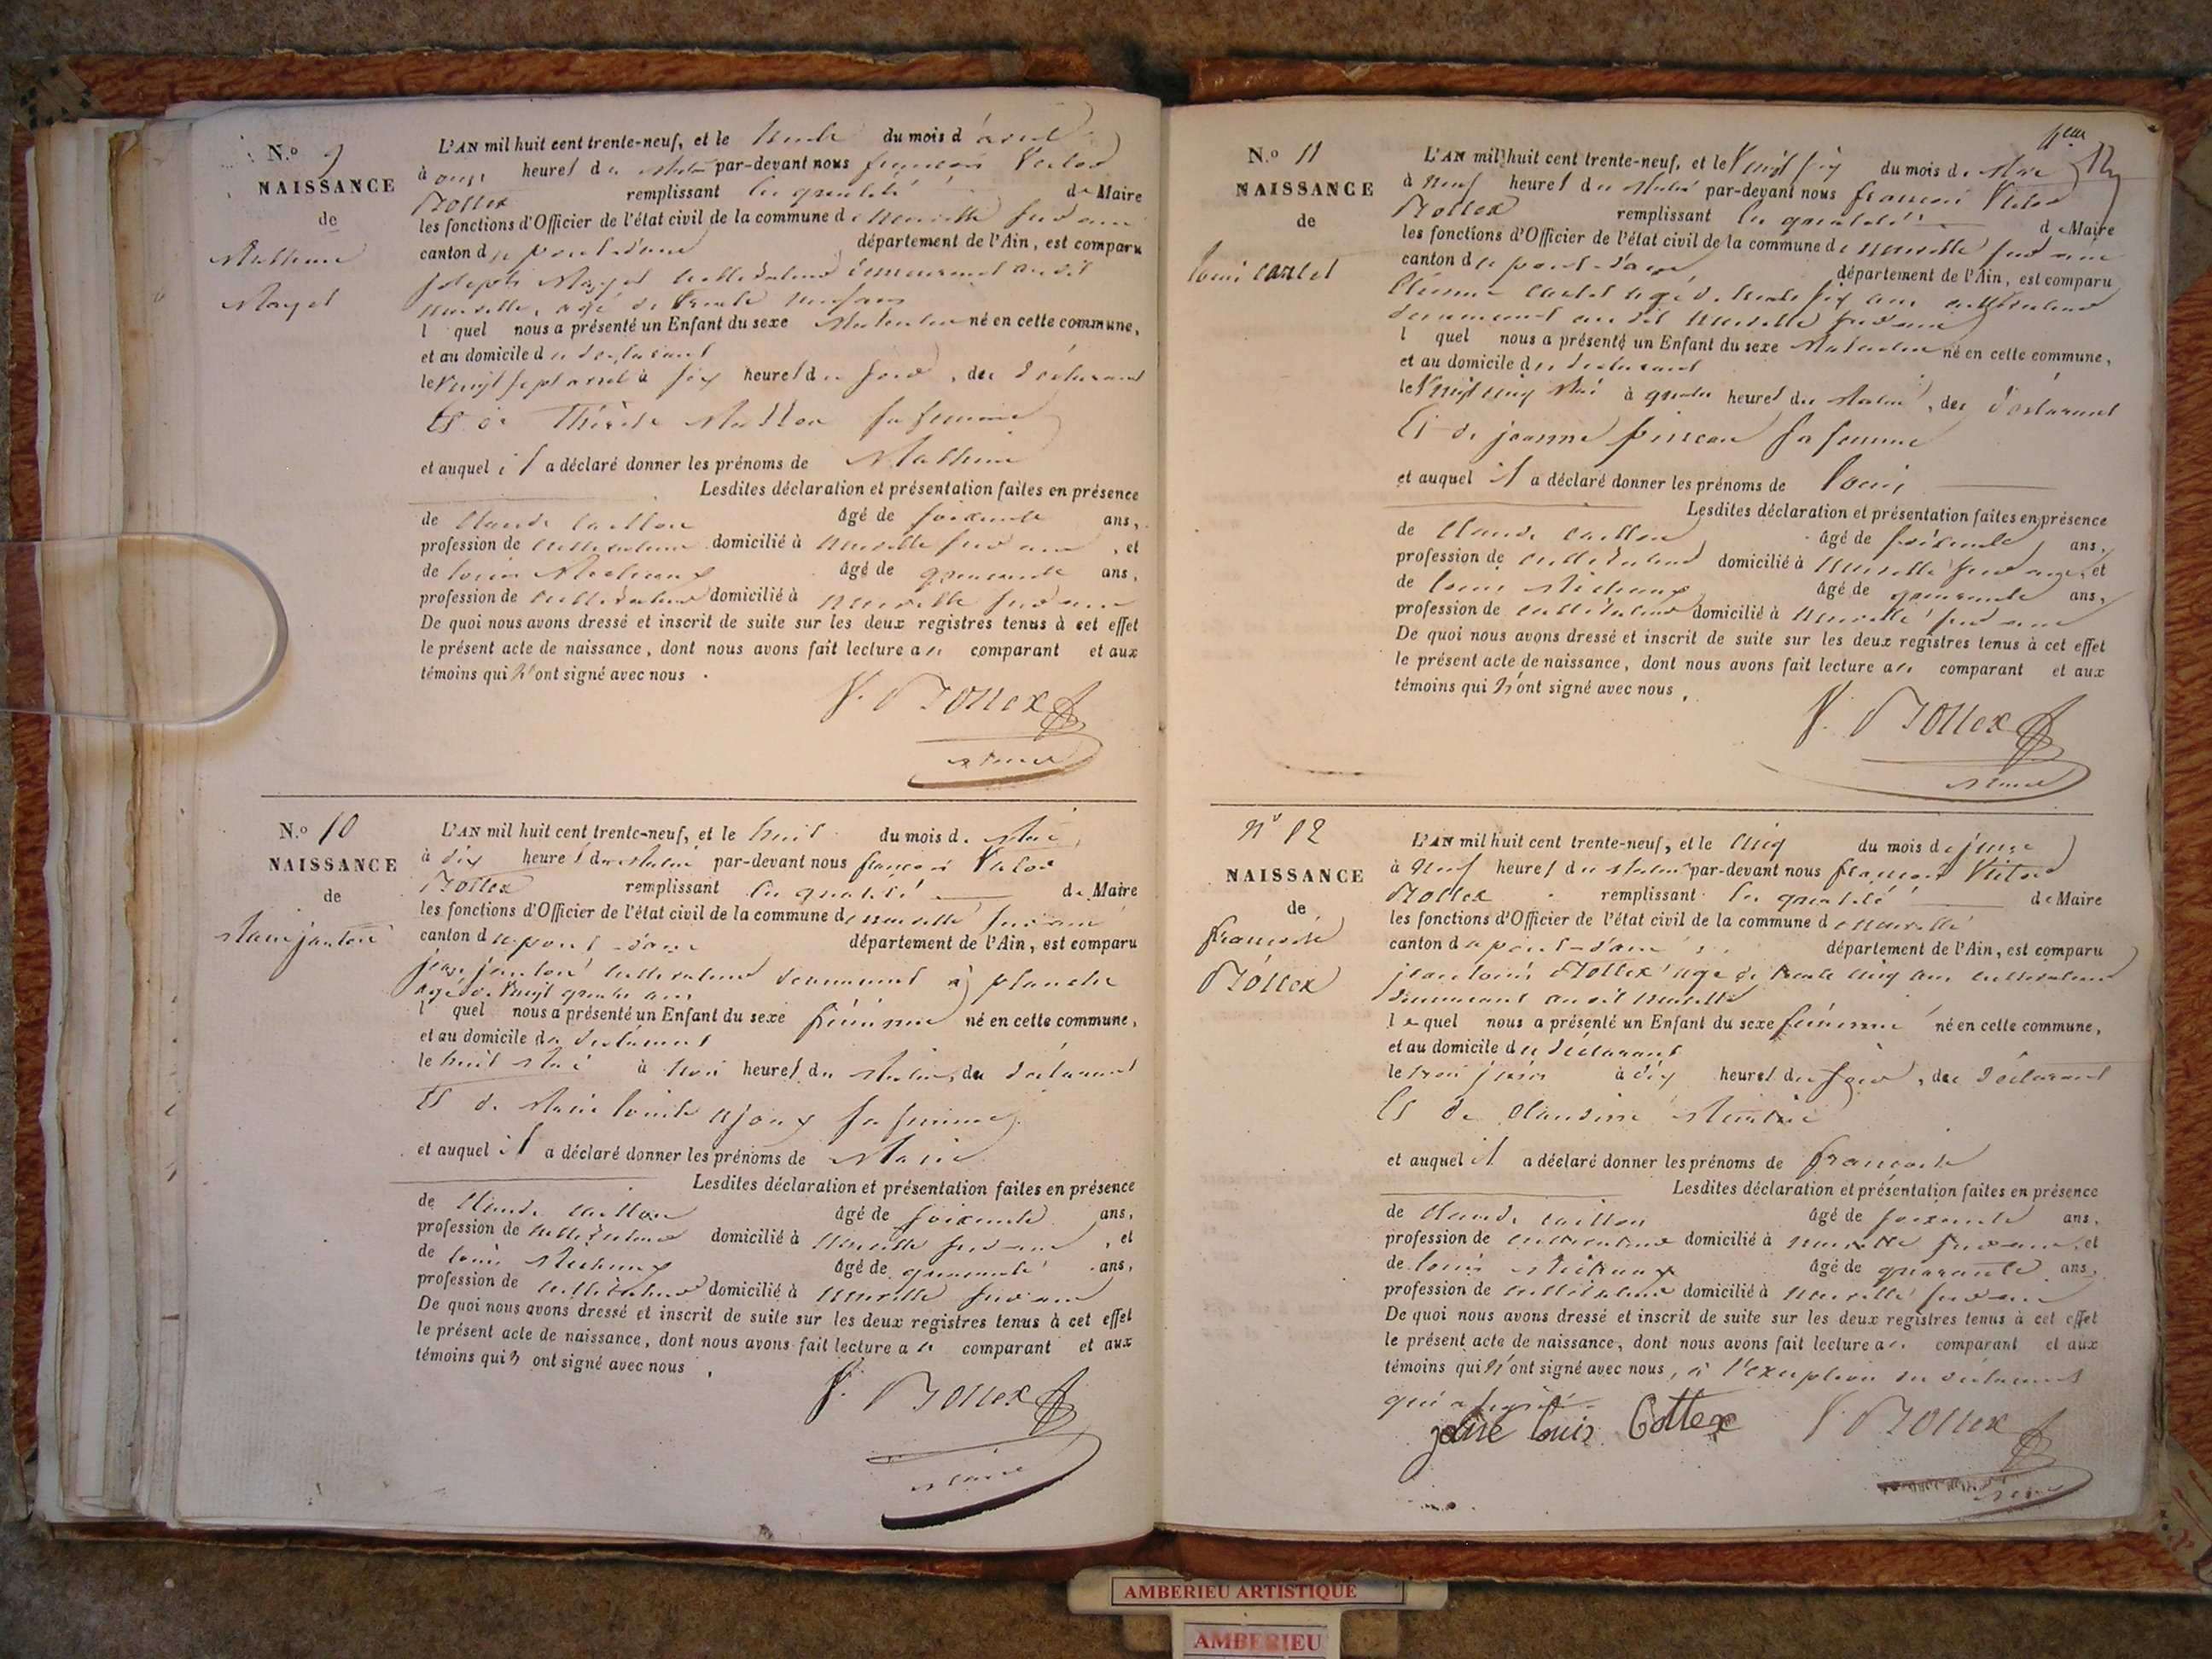 N.º 9
NAISSANCE
de
Mathieu
Mayet
L'AN mil huit cent trente-neuf, et le trente du mois d'avril
à onze heures du matin par-devant nous françois Victor
Bottex remplissant les qualité de Maire
les fonctions d'Officier de l'état civil de la commune de neuville sur ain
canton de pont-d'ain département de l'Ain, est comparu
joseph Mayet cultivateur demeurant audit
neuville, agé de trente neuf ans
l quel nous a présenté un Enfant du sexe Masculin né en cette commune,
et au domicile du déclarant
le vingt sept avril à six heures du soir, du déclarant
Et de Thérèse sa femme
et auquel il a déclaré donner les prénoms de Mathieu
Lesdites déclaration et présentation faites en présence
de Claude caillon âgé de soixante ans,
profession de cultivateur domicilié à neuville sur ain, et
de louis Michaux âgé de quarante ans,
profession de cultivateur domicilié à neuville sur ain
De quoi nous avons dressé et inscrit de suite sur les deux registres tenus à cet effet
le présent acte de naissance, dont nous avons fait lecture au comparant et aux
témoins qui n'ont signé avec nous.
V. Bottex
Maire
N.º 10
NAISSANCE
de
Marie janton
L'AN mil huit cent trente-neuf, et le huit du mois de Mai
à dix heures du Matin par-devant nous françois Victor
Bottex remplissant les qualité de Maire
les fonctions d'Officier de l'état civil de la commune de neuville sur ain
canton de pont-d'ain département de l'Ain, est comparu
janton cultivateur demeurant à planche
agé de vingt quatre ans
l quel nous a présenté un Enfant du sexe féminin né en cette commune,
et au domicile du déclarant
le huit Mai à trois heures du Matin, du déclarant
Et de Marie louise ajoux sa femme
et auquel il a déclaré donner les prénoms de Marie
Lesdites déclaration et présentation faites en présence
de Claude caillon âgé de soixante ans,
profession de cultivateur domicilié à neuville sur ain, et
de louis Michaux âgé de quarante ans,
profession de cultivateur domicilié à neuville sur ain
De quoi nous avons dressé et inscrit de suite sur les deux registres tenus à cet effet
le présent acte de naissance, dont nous avons fait lecture au comparant et aux
témoins qui n ont signé avec nous.
V. Bottex
Maire
N.º 11
NAISSANCE
de
louis cartet
L'AN mil huit cent trente-neuf, et le Vingt six du mois de Mai
à neuf heures du Matin par-devant nous françois Victor
Bottex remplissant les qualité de Maire
les fonctions d'Officier de l'état civil de la commune de neuville sur ain
canton de pont-d'ain département de l'Ain, est comparu
Etienne cartet agé de trente six ans cultivateur
demeurant au dit neuville sur ain
l quel nous a présenté un Enfant du sexe Masculin né en cette commune,
et au domicile du déclarant
le Vingt cinq Mai à quatre heures du Matin, du déclarant
Et de jeanne sa femme
et auquel il a déclaré donner les prénoms de louis
Lesdites déclaration et présentation faites en présence
de Claude caillon âgé de soixante ans,
profession de cultivateur domicilié à neuville sur ain, et
de louis Michaux âgé de quarante ans,
profession de cultivateur domicilié à neuville sur ain
De quoi nous avons dressé et inscrit de suite sur les deux registres tenus à cet effet
le présent acte de naissance, dont nous avons fait lecture au comparant et aux
témoins qui n'ont signé avec nous.
V. Bottex
Maire
Nº 12
NAISSANCE
de
françoise
Bottex
L'AN mil huit cent trente-neuf, et le cinq du mois de juin
à neuf heures du Matin par-devant nous françois Victor
Bottex remplissant les qualité de Maire
les fonctions d'Officier de l'état civil de la commune de neuville
canton de pont-d'ain département de l'Ain, est comparu
jean louis Bottex agé de trente cinq ans cultivateur
demeurant au dit neuville
lequel nous a présenté un Enfant du sexe féminin né en cette commune,
et au domicile du déclarant
le trois juin à dix heures du soir, du déclarant
Et de Claudine
et auquel il a déclaré donner les prénoms de françoise
Lesdites déclaration et présentation faites en présence
de Claude caillon âgé de soixante ans,
profession de cultivateur domicilié à neuville sur ain, et
de louis Michaux âgé de quarante ans,
profession de cultivateur domicilié à neuville sur ain
De quoi nous avons dressé et inscrit de suite sur les deux registres tenus à cet effet
le présent acte de naissance, dont nous avons fait lecture au comparant et aux
témoins qui n'ont signé avec nous, à l'exception du déclarant
qui a signé
jean louis Bottex V. Bottex
Maire
AMBERIEU ARTISTIQUE
AMBERIEU